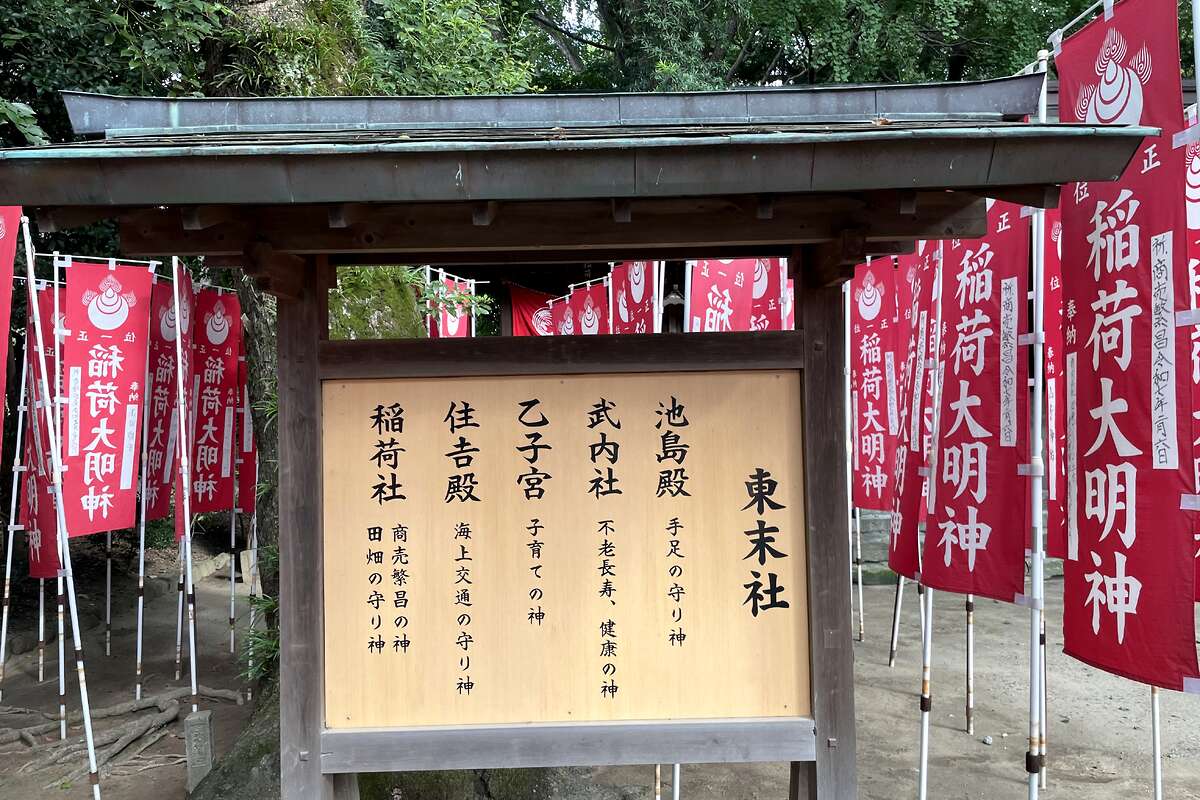 東末社
池島殿 手足の守り神
武内社 不老長寿、健康の神
乙子宮 子育ての神
住吉殿 海上交通の守り神
稲荷社 商売繁昌の神
田畑の守り神
正一位
稲荷大明神
奉納
祈商売繁昌令和七年
正一位
稲荷大明神
奉納
稲荷大明神
正一位
稲荷大明神
奉納
稲荷大明神
奉納
正一位
稲荷大明神